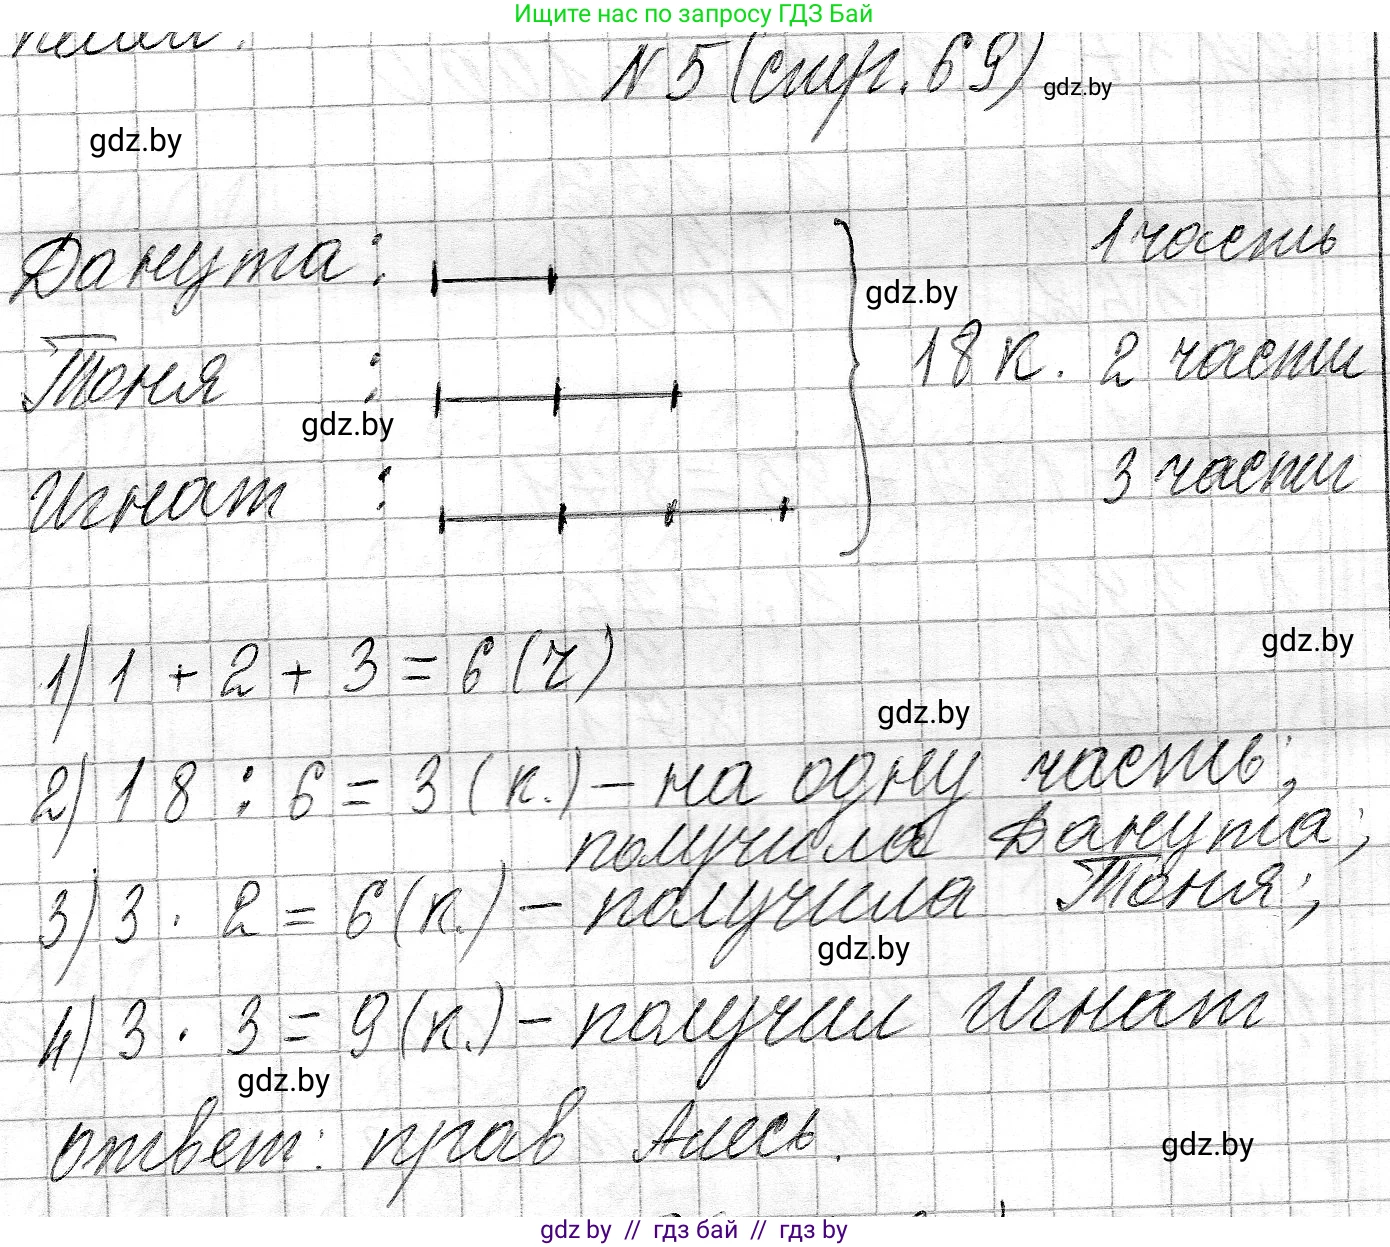 Ищите нас по запросу ГДЗ Бай
N 5 (стр. 69) gdz.by
gdz.by
Данута: 1 часть
gdz.by
Тоня : 18 к. 2 части
gdz.by
Игнат : 3 части
1) 1 + 2 + 3 = 6 (ч)
gdz.by
gdz.by
2) 18 : 6 = 3 (к.) – на одну часть;
получила Данута;
3) 3 · 2 = 6 (к.) – получила Тоня;
gdz.by
4) 3 · 3 = 9 (к.) – получил Игнат
gdz.by
ответ: прав Алесь.
gdz.by
gdz by // гдз бай // гдз by